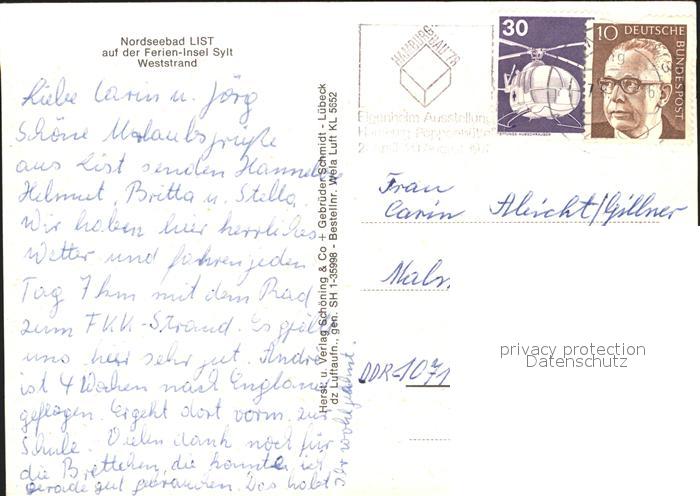 Nordseebad LIST
auf der Ferien-Insel Sylt
Weststrand
Liebe Carin u. Jörg
Schöne Urlaubsgrüße
aus List senden Hannelore
Helmut, Britta u. Stella.
Wir haben hier herrliches
Wetter und fahren jeden
Tag 7 km mit dem Rad
zum FKK-Strand. Es gefällt
uns hier sehr gut. André
ist 4 Wochen nach England
geflogen. Er geht dort vorm. zur
Schule. Vielen dank noch für
die Brettchen, die konnten wir
gerade gut gebrauchen. Das habt
Ihr
Herst. u. Verlag Schöning & Co + Gebrüder Schmidt - Lübeck
dz Luftaufn., gen. SH 1-35998 - Bestellnr. Wela Luft KL 5552
HAMBURG BAU 78
Eigenheim Ausstellung
Hamburg Poppenbüttel
30
10 DEUTSCHE
BUNDESPOST
Frau
Carin Aleicht/Gillner
DDR-1071
privacy protection
Datenschutz